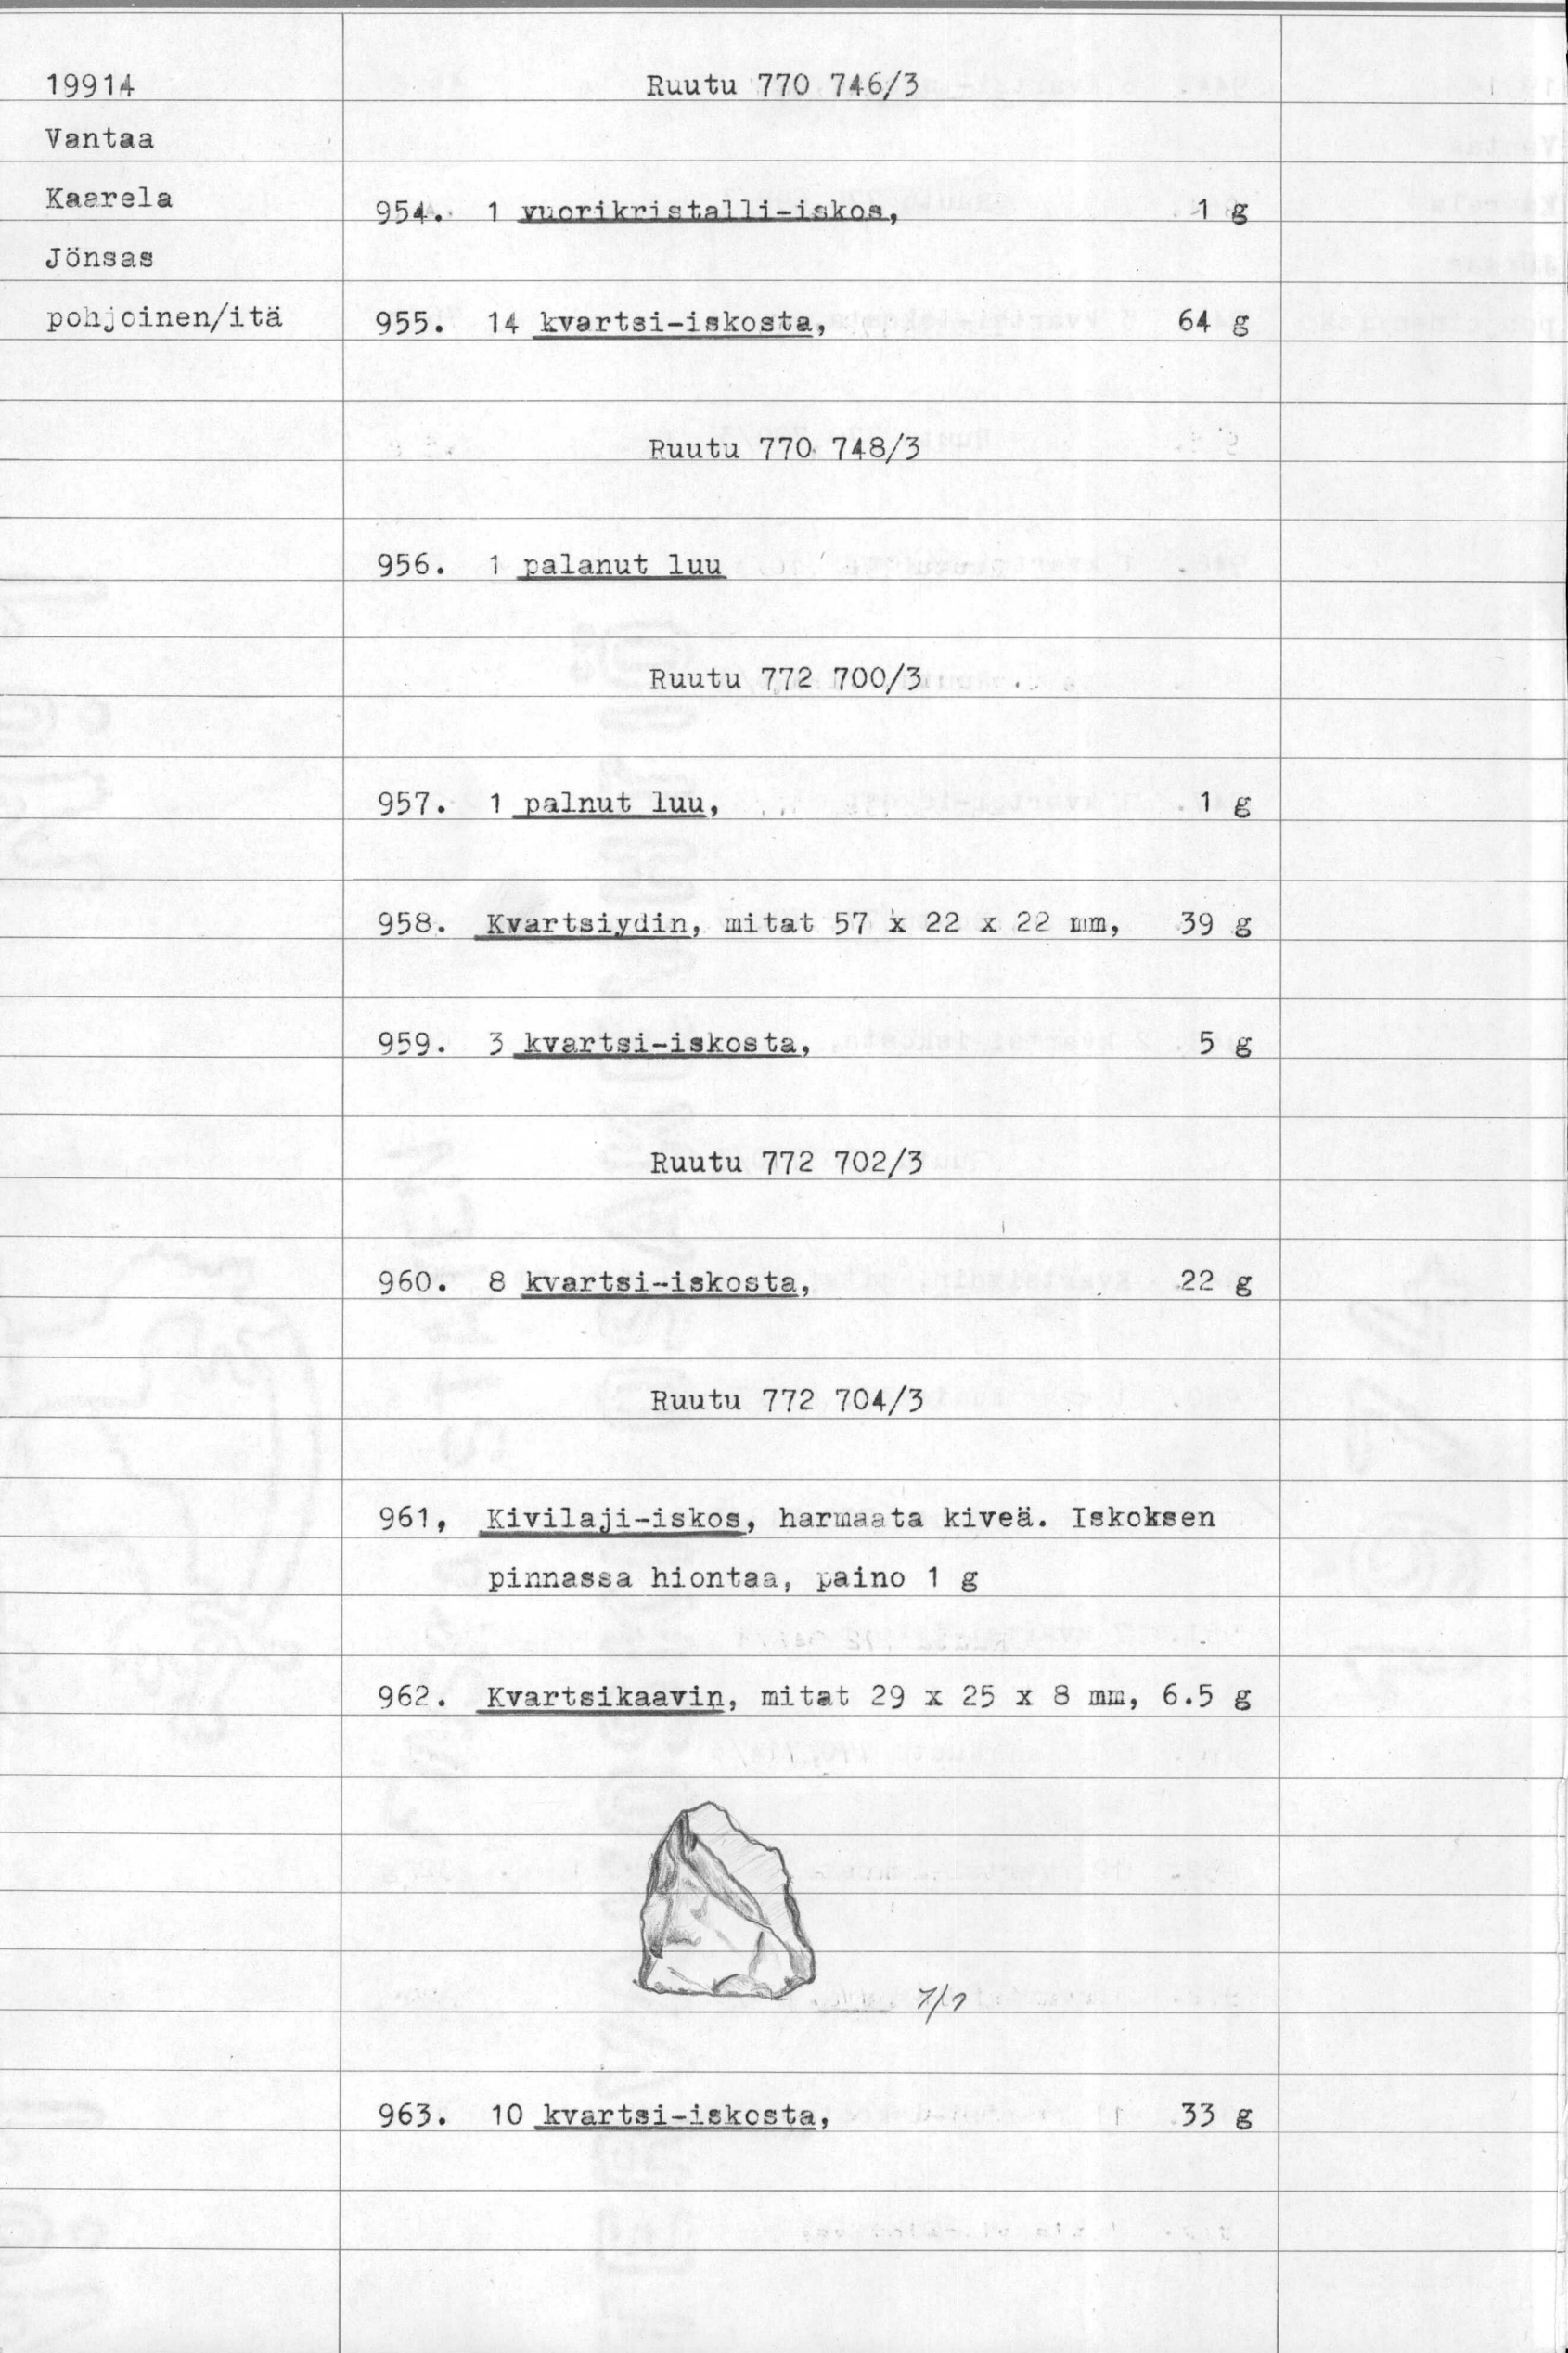 19914
Vantaa
Kaarela
Jönsas
pohjoinen/itä
Ruutu 770 746/3
954. 1 vuorikristalli-iskos, 1 g
955. 14 kvartsi-iskosta, 64 g
Ruutu 770 748/3
956. 1 palanut luu
Ruutu 772 700/3
957. 1 palnut luu, 1 g
958. Kvartsiydin, mitat 57 x 22 x 22 mm, 39 g
959. 3 kvartsi-iskosta, 5 g
Ruutu 772 702/3
960. 8 kvartsi-iskosta, 22 g
Ruutu 772 704/3
961, Kivilaji-iskos, harmaata kiveä. Iskoksen
pinnassa hiontaa, paino 1 g
962. Kvartsikaavin, mitat 29 x 25 x 8 mm, 6.5 g
1/1
963. 10 kvartsi-iskosta, 33 g